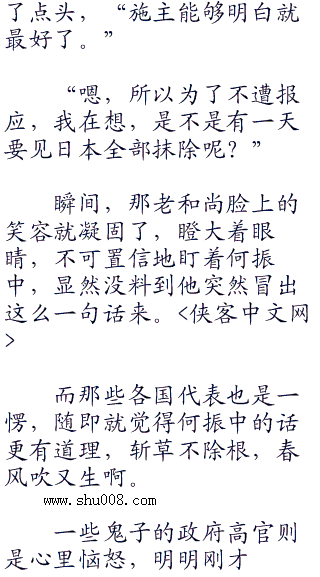 了点头，“施主能够明白就
最好了。”
“嗯，所以为了不遭报
应，我在想，是不是有一天
要见日本全部抹除呢？”
瞬间，那老和尚脸上的
笑容就凝固了，瞪大着眼
睛，不可置信地盯着何振
中，显然没料到他突然冒出
这么一句话来。<侠客中文网
>
而那些各国代表也是一
愣，随即就觉得何振中的话
更有道理，斩草不除根，春
风吹又生啊。
www.shu008.com
一些鬼子的政府高官则
是心里恼怒，明明刚才